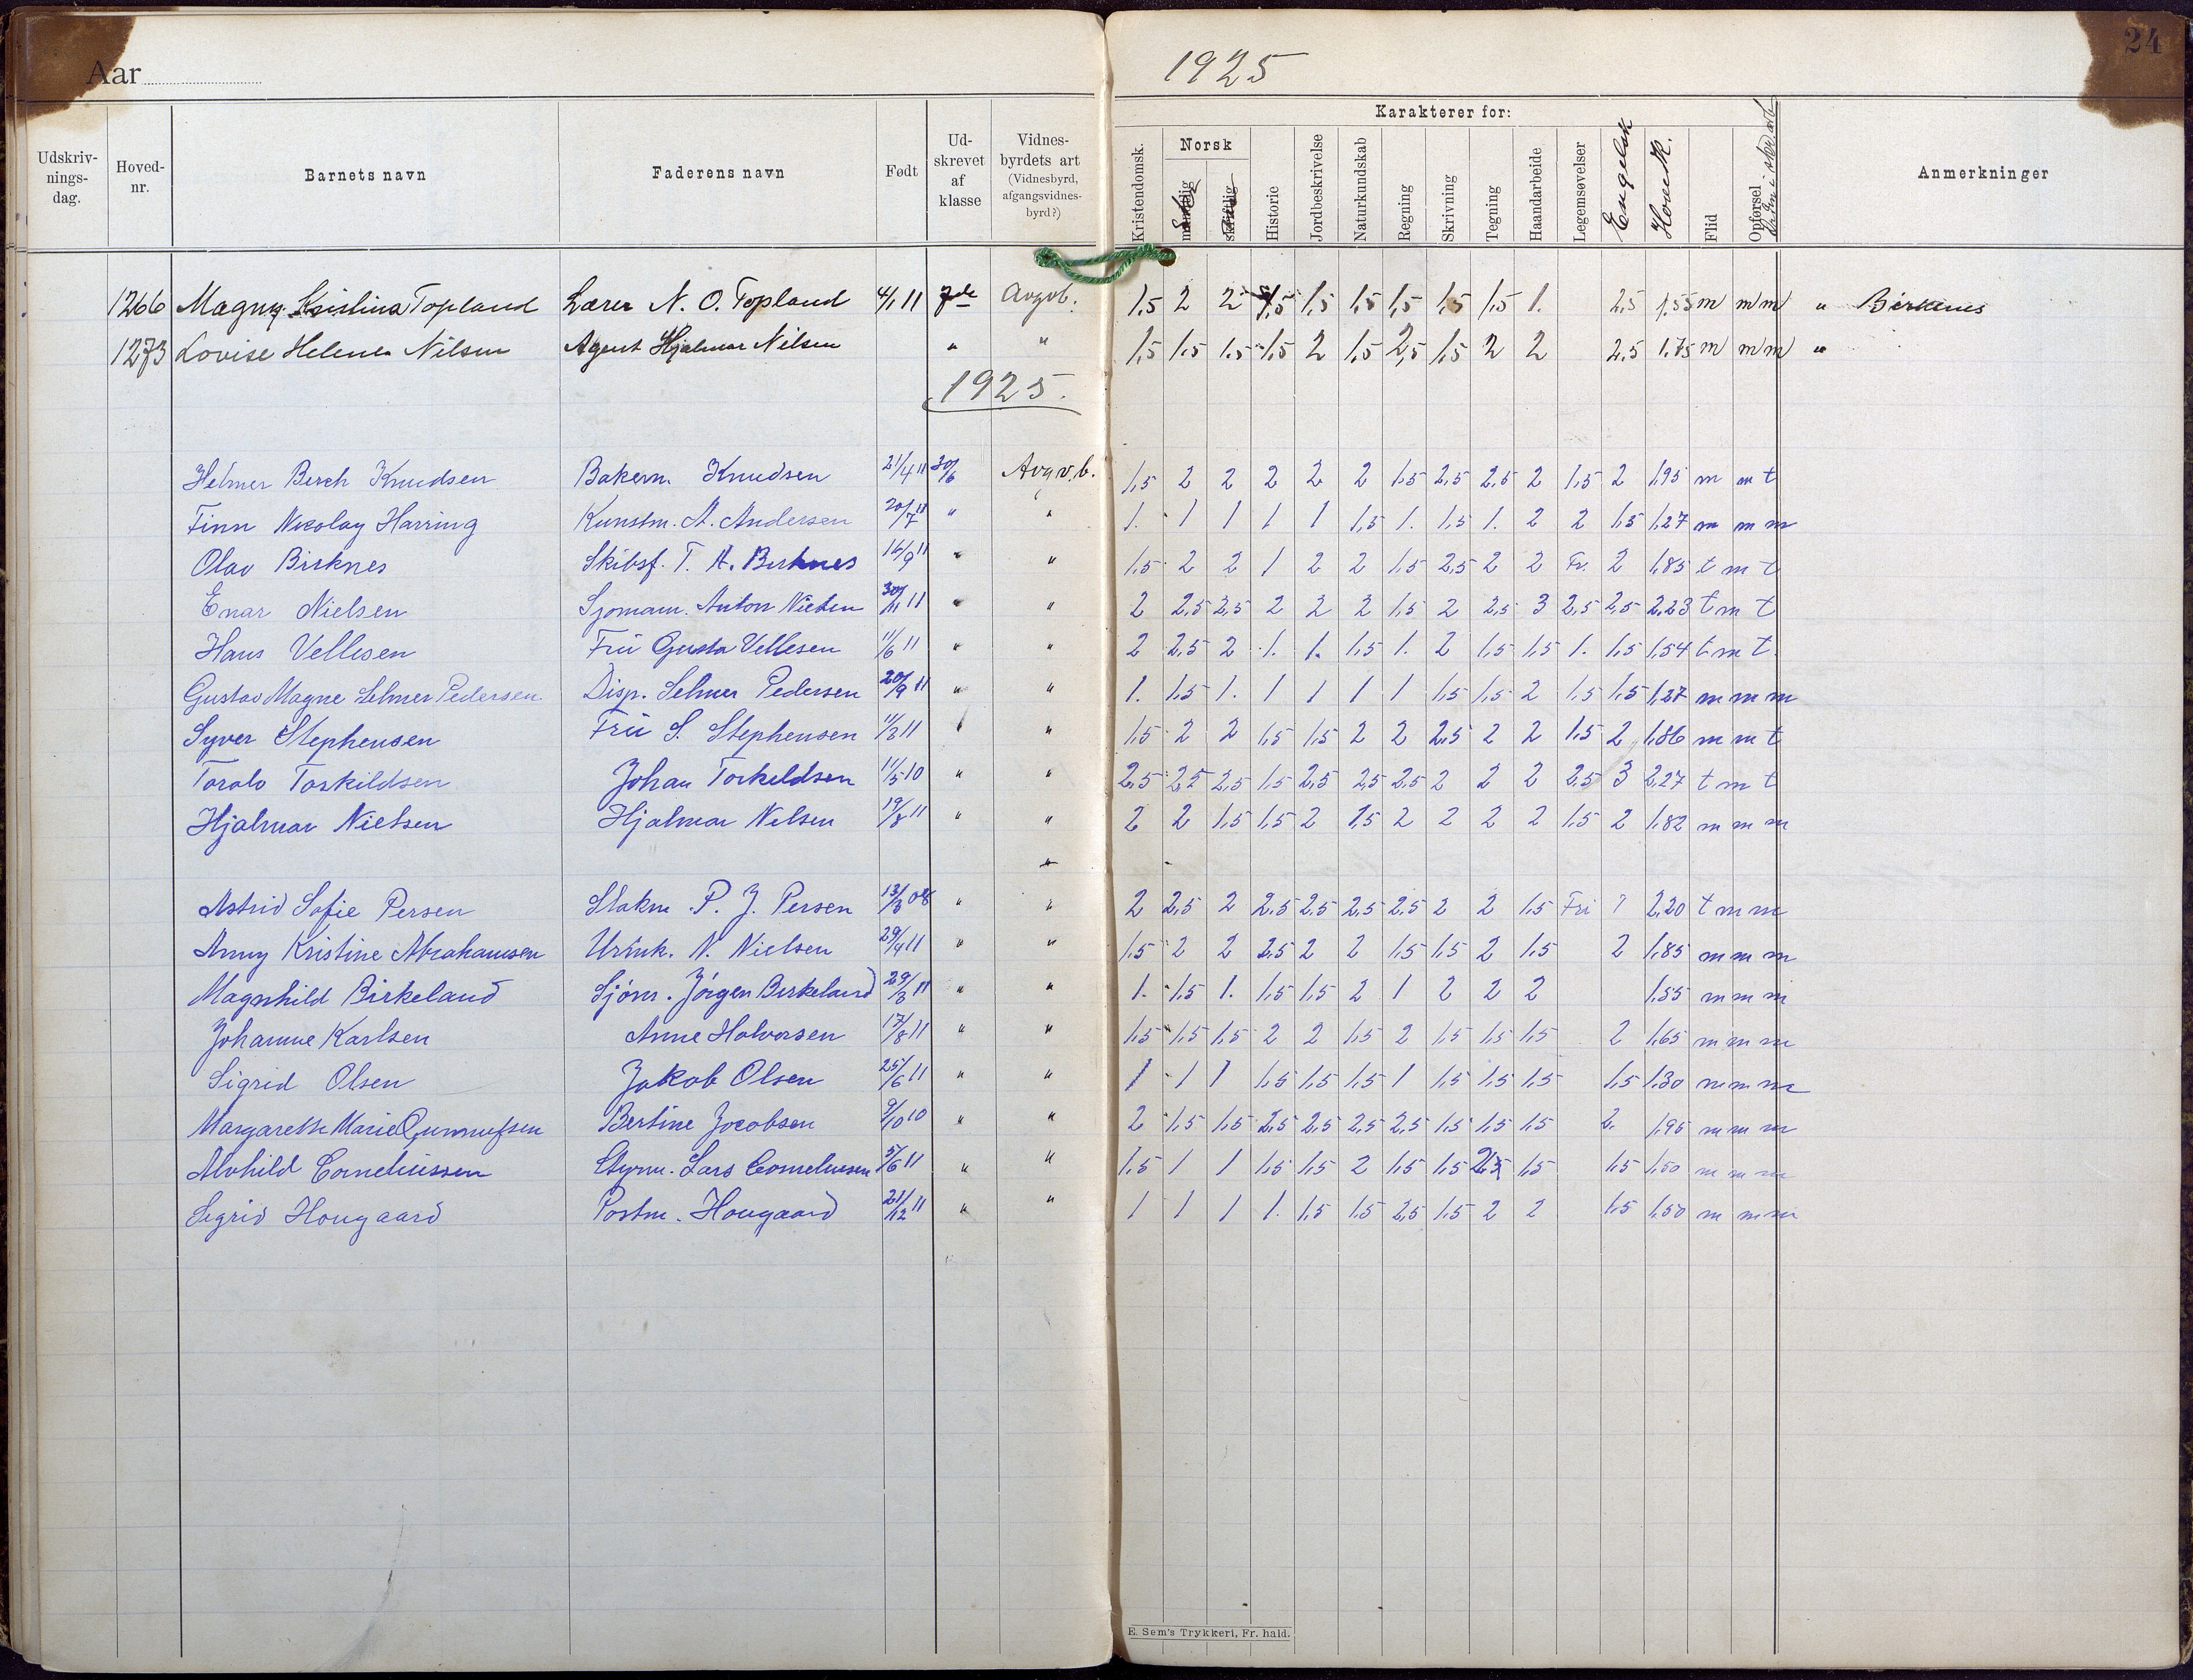 Aar
1925
24
Udskriv-nings-dag. Hoved-nr. Barnets navn Faderens navn Født Ud-skrevet af klasse Vidnes-byrdets art (Vidnesbyrd, afgangsvidnes-byrd?)
Karakterer for:
Kristendomsk. Norsk mundtlig skriftlig Historie Jordbeskrivelse Naturkundskab Regning Skrivning Tegning Haandarbeide Legemsøvelser Engelsk Hovedk. Flid Opførsel Anmerkninger
1266 Magny Kristina Topland Lærer N. O. Topland 4/1 11 7de Avgvb. 1,5 2 2 1,5 1,5 1,5 1,5 1,5 1,5 1. 2,5 1,55 m m m " Birkenes
1273 Lovise Helene Nilsen Agent Hjalmar Nilsen " " 1,5 1,5 1,5 1,5 2 1,5 2,5 1,5 2 2 2,5 1,75 m m m "
1925.
Helmer Berch Knudsen Bakerm. Knudsen 21/4 11 30/6 Avgv.b. 1,5 2 2 2 2 2 1,5 2,5 2,5 2 1,5 2 1,95 m m t
Finn Nicolay Harring Kunstm. A. Andersen 20/7 11 " " 1. 1 1 1 1 1,5 1. 1,5 1. 2 2 1,5 1,27 m m m
Olav Birknes Skibsf. T. A. Birknes 16/9 11 " " 1,5 2 2 1 2 2 1,5 2,5 2 2 Fr. 2 1,85 t m t
Enar Nielsen Sjømann. Anton Nielsen 30/11 11 " " 2 2,5 2,5 2 2 2 1,5 2 2,5 3 2,5 2,5 2,23 t m t
Hans Vellesen Fru Gusta Vellesen 11/6 11 " " 2 2,5 2 1. 1. 1,5 1. 2 1,5 1,5 1. 1,5 1,54 t m t.
Gustav Magne Selmer Pedersen Disp. Selmer Pedersen 20/9 11 " " 1. 1,5 1. 1 1 1 1 1,5 1,5 2 1,5 1,5 1,27 m m m
Syver Stephensen Fru S. Stephensen 11/3 11 " " 1,5 2 2 1,5 1,5 2 2 2,5 2 2 1,5 2 1,86 m m t
Toralv Torkildsen Johan Torkeldsen 11/5 10 " " 2,5 2,5 2,5 1,5 2,5 2,5 2,5 2 2 2 2,5 3 2,27 t m t
Hjalmar Nielsen Hjalmar Nilsen 19/8 11 " " 2 2 1,5 1,5 2 1,5 2 2 2 2 1,5 2 1,82 m m m
"
Astrid Sofie Persen P. J. Persen 13/3 08 " " 2 2,5 2 2,5 2,5 2,5 2,5 2 2 1,5 Fri ? 2,20 t m m
Anny Kristine Abrahamsen Urmk. N. Nielsen 29/4 11 " " 1,5 2 2 2,5 2 2 1,5 1,5 2 1,5 2 1,85 m m m
Magnhild Birkeland Sjøm. Jørgen Birkeland 29/3 11 " " 1. 1,5 1. 1,5 1,5 2 1 2 2 2 1,55 m m m
Johanne Karlsen Anne Halvorsen 17/8 11 " " 1,5 1,5 1,5 2 2 1,5 2 1,5 1,5 1,5 2 1,65 m m m
Sigrid Olsen Jakob Olsen 25/6 11 " " 1 1 1 1,5 1,5 1,5 1 1,5 1,5 1,5 1,5 1,30 m m m
Margarethe Marie Gunnufsen Bertine Jocobsen 9/10 10 " " 2 1,5 1,5 2,5 2,5 2,5 2,5 1,5 1,5 1,5 2. 1,95 m m m
Alvhild Corneliussen Styrm. Lars Corneliusen 5/6 11 " " 1,5 1 1 1,5 1,5 2 1,5 1,5 2,5 1,5 1,5 1,50 m m m
Sigrid Hougaard Postm. Hougaard 21/12 11 " " 1 1 1 1. 1,5 1,5 2,5 1,5 2 2 1,5 1,50 m m m
E. Sem's Trykkeri, Fr. hald.